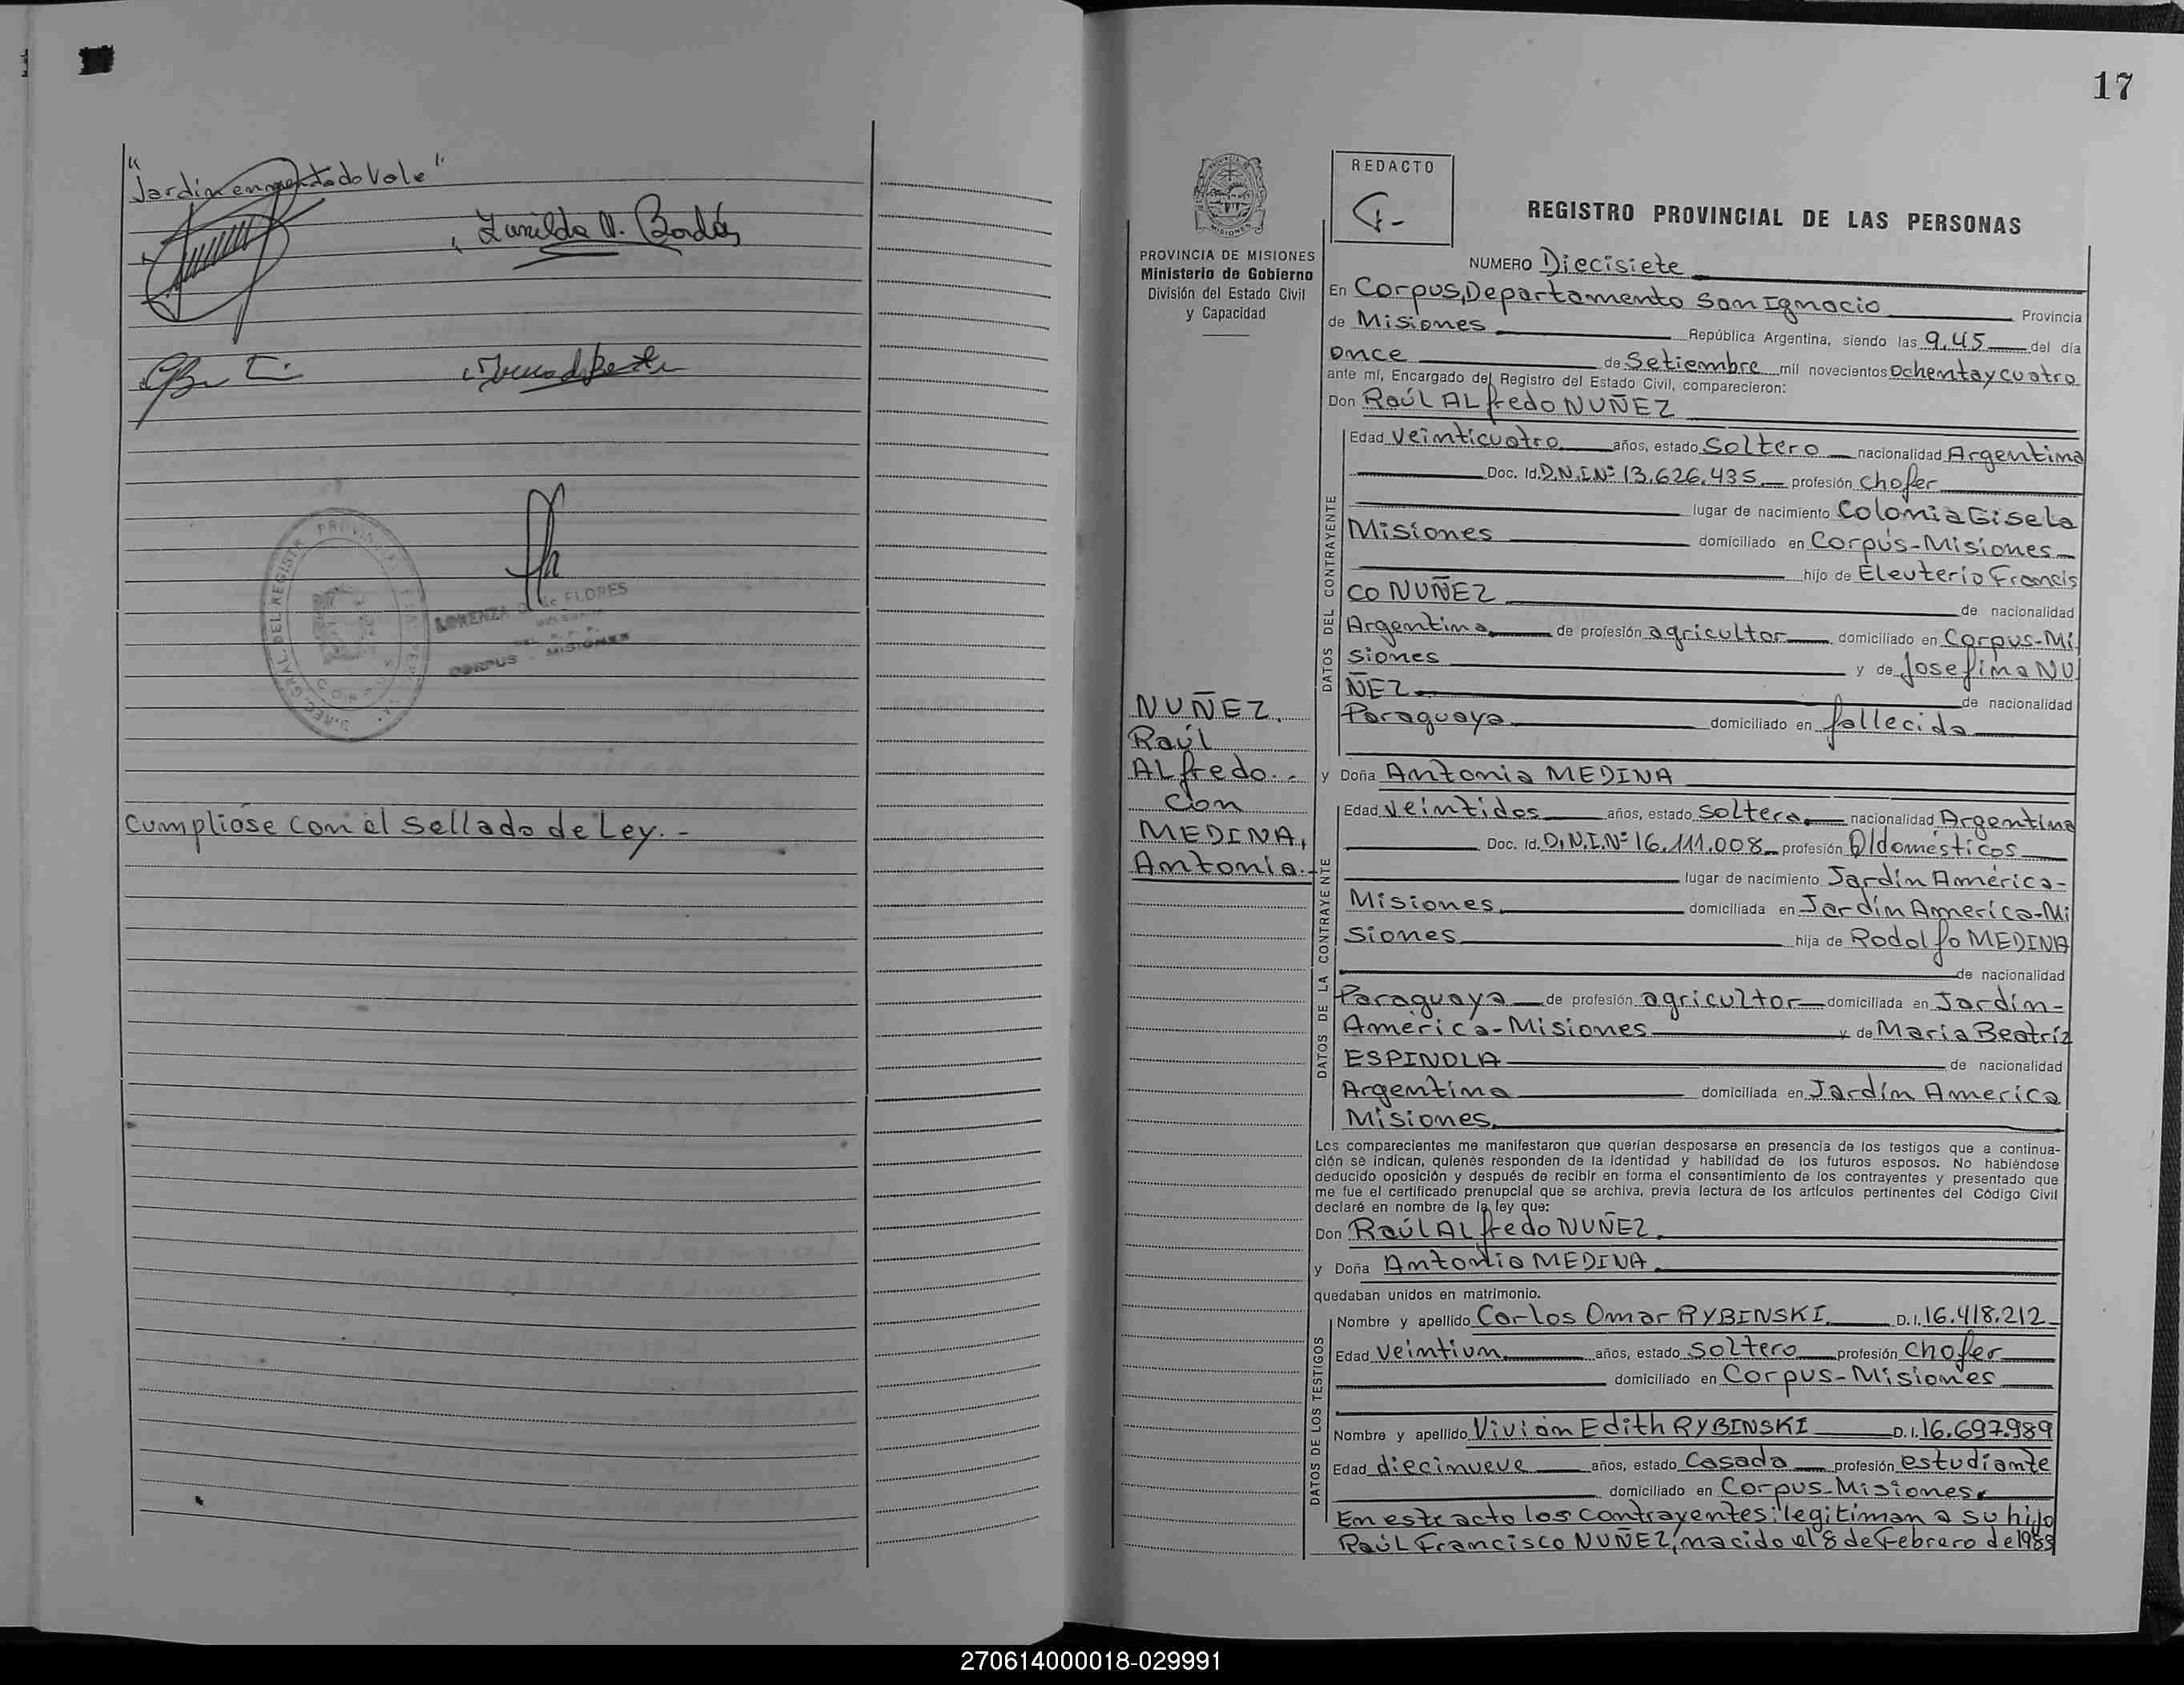 "Jardin enmentado Vale"
Zunilda N. Bordón
LORENZA G. de FLORES
CORPUS - MISIONES
Cumpliose con el Sellado de Ley. -
17
REDACTO
REGISTRO PROVINCIAL DE LAS PERSONAS
PROVINCIA DE MISIONES
Ministerio de Gobierno
División del Estado Civil
y Capacidad
NUMERO Diecisiete
En Corpus, Departamento San Ignacio Provincia
de Misiones República Argentina, siendo las 9,45 del día
once de Setiembre mil novecientos Ochenta y cuatro
ante mí, Encargado del Registro del Estado Civil, comparecieron:
Don Raúl ALfredo NUÑEZ
DATOS DEL CONTRAYENTE
Edad Veinticuatro años, estado Soltero nacionalidad Argentina
Doc. Id. D.N.I.Nº 13.626.435 profesión Chofer
lugar de nacimiento Colonia Gisela
Misiones domiciliado en Corpús-Misiones
hijo de Eleuterio Francis
co NUÑEZ de nacionalidad
Argentina de profesión agricultor domiciliado en Corpus-Mi
siones y de Josefina NU
ÑEZ de nacionalidad
Paraguaya domiciliado en fallecida
NUÑEZ,
Raúl
ALfredo.-
Con
MEDINA,
Antonia.-
y Doña Antonia MEDINA
DATOS DE LA CONTRAYENTE
Edad Veintidos años, estado Soltera nacionalidad Argentina
Doc. Id. D.N.I.Nº 16.111.008 profesión Q/domésticos
lugar de nacimiento Jardín América-
Misiones domiciliada en Jardín America-Mi
siones hija de Rodolfo MEDINA
de nacionalidad
Paraguaya de profesión agricultor domiciliada en Jardín-
América-Misiones y de Maria Beatríz
ESPINOLA de nacionalidad
Argentina domiciliada en Jardín America
Misiones.
Los comparecientes me manifestaron que querían desposarse en presencia de los testigos que a continua-
ción se indican, quienes responden de la identidad y habilidad de los futuros esposos. No habiéndose
deducido oposición y después de recibir en forma el consentimiento de los contrayentes y presentado que
me fue el certificado prenupcial que se archiva, previa lectura de los artículos pertinentes del Código Civil
declaré en nombre de la ley que:
Don Raúl ALfredo NUÑEZ.
y Doña Antonia MEDINA.
quedaban unidos en matrimonio.
DATOS DE LOS TESTIGOS
Nombre y apellido Carlos Omar RYBINSKI. D.I. 16.418.212
Edad Veintiun años, estado Soltero profesión Chofer
domiciliado en Corpus-Misiones
Nombre y apellido Vivian Edith RYBINSKI D.I. 16.697.989
Edad diecinueve años, estado Casada profesión estudiante
domiciliado en Corpus-Misiones.
En este acto los contrayentes: legitiman a su hijo
Raúl Francisco NUÑEZ, nacido el 8 de Febrero de
270614000018-029991